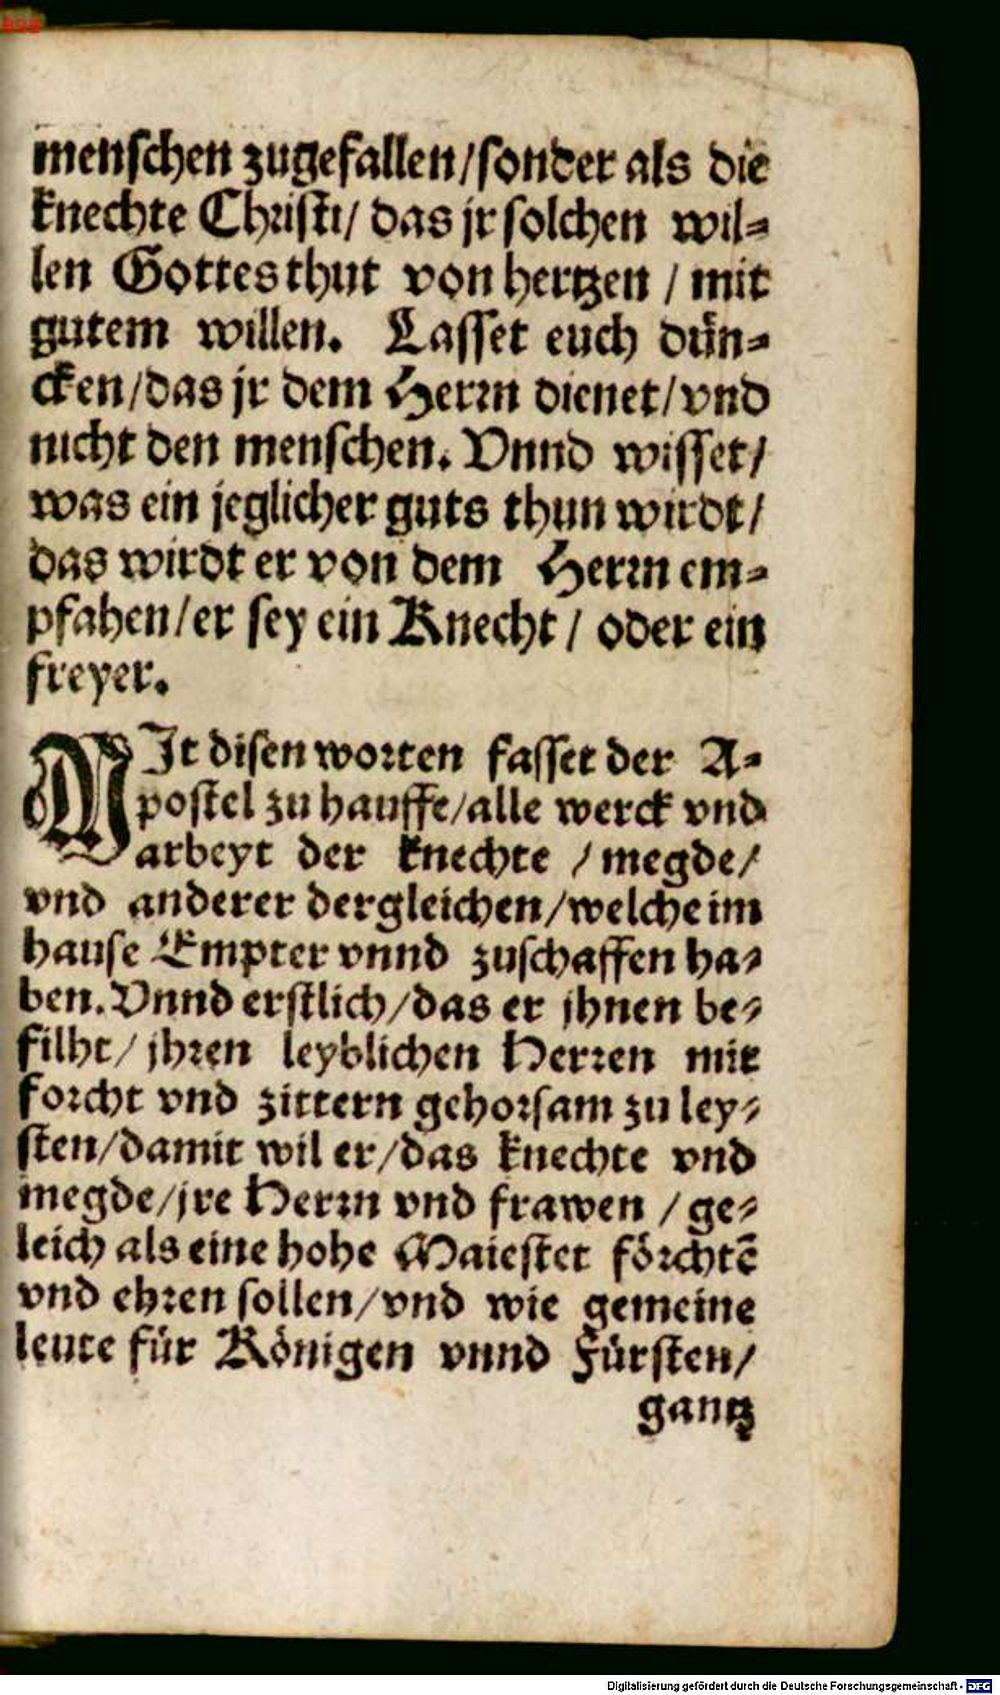 menschen zugefallen/sonder als die
knechte Christi/ das jr solchen wil⸗
len Gottes thut von hertzen / mit
gutem willen. Lasset euch dün⸗
cken/das jr dem Herrn dienet/vnd
nicht den menschen. Vnnd wisset/
was ein jeglicher guts thun wirdt/
das wirdt er von dem Herrn em⸗
pfahen/er sey ein Knecht / oder ein
freyer.
MJt disen worten fasset der A⸗
postel zu hauffe/alle werck vnd
arbeyt der knechte / megde/
vnd anderer dergleichen/welche im
hause Empter vnnd zuschaffen ha⸗
ben. Vnnd erstlich/das er jhnen be⸗
filht/ jhren leyblichen Herren mit
forcht vnd zittern gehorsam zu ley⸗
sten/damit wil er/das knechte vnd
megde/jre Herrn vnd frawen / ge⸗
leich als eine hohe Maiestet förchtē
vnd ehren sollen/vnd wie gemeine
leute für Königen vnnd Fürsten/
gantz
Digitalisierung gefördert durch die Deutsche Forschungsgemeinschaft - DFG